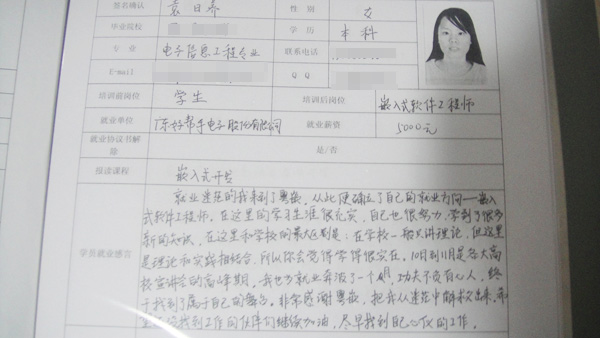 签名确认 袁日养 性 别 女
毕业院校 学 历 本科
专 业 电子信息工程专业 联系电话
E-mail Q Q
培训前岗位 学生 培训后岗位 嵌入式软件工程师
就业单位 广东好帮手电子股份有限公司 就业薪资 5000元
就业协议书解除 是/否
报读课程 嵌入式开发
学员就业感言
就业迷茫的我来到了粤嵌，从此便确立了自己的就业方向——嵌入
式软件工程师。在这里的学习生涯很充实，自己也很努力，学到了很多
新的知识。在这里和学校的最大区别是：在学校一般只讲理论，但这里
是理论和实践相结合，所以你会觉得学得很实在。10月到11月是各大高
校宣讲会的高峰期，我也为就业奔波了一个月，功夫不负有心人，终
于找到了属于自己的舞台。非常感谢粤嵌，把我从迷茫中解救出来，希
找到工作的伙伴们继续加油，尽早找到自己心仪的工作。